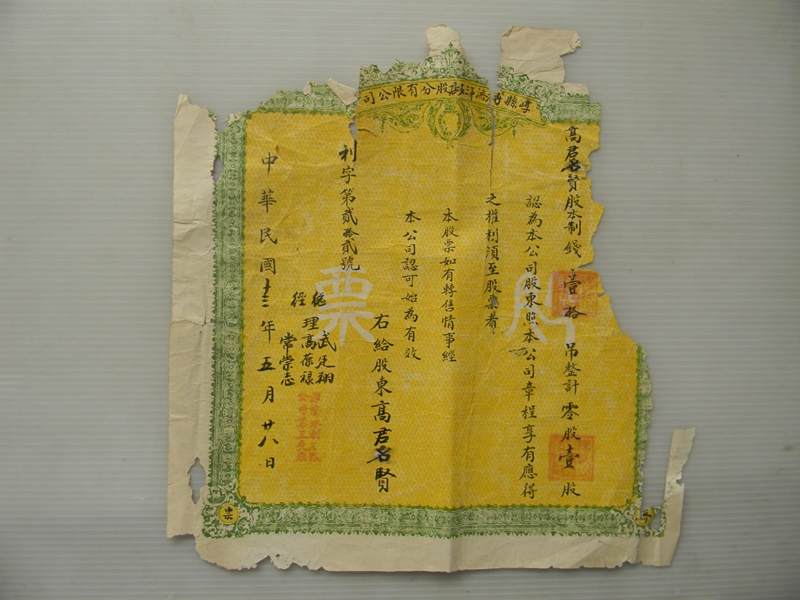 崞縣 股分有限公司
高君名賢股本制錢壹拾吊整計零股壹股
認為本公司股東照本公司章程享有應得
之權利須至股票者
本股票如有轉售情事經
本公司認可始為有效
右給股東高君名賢
利字第貳拾貳號
總 武廷翔
經理高葆祿
常崇志
中華民國十三年五月廿八日
股票
票